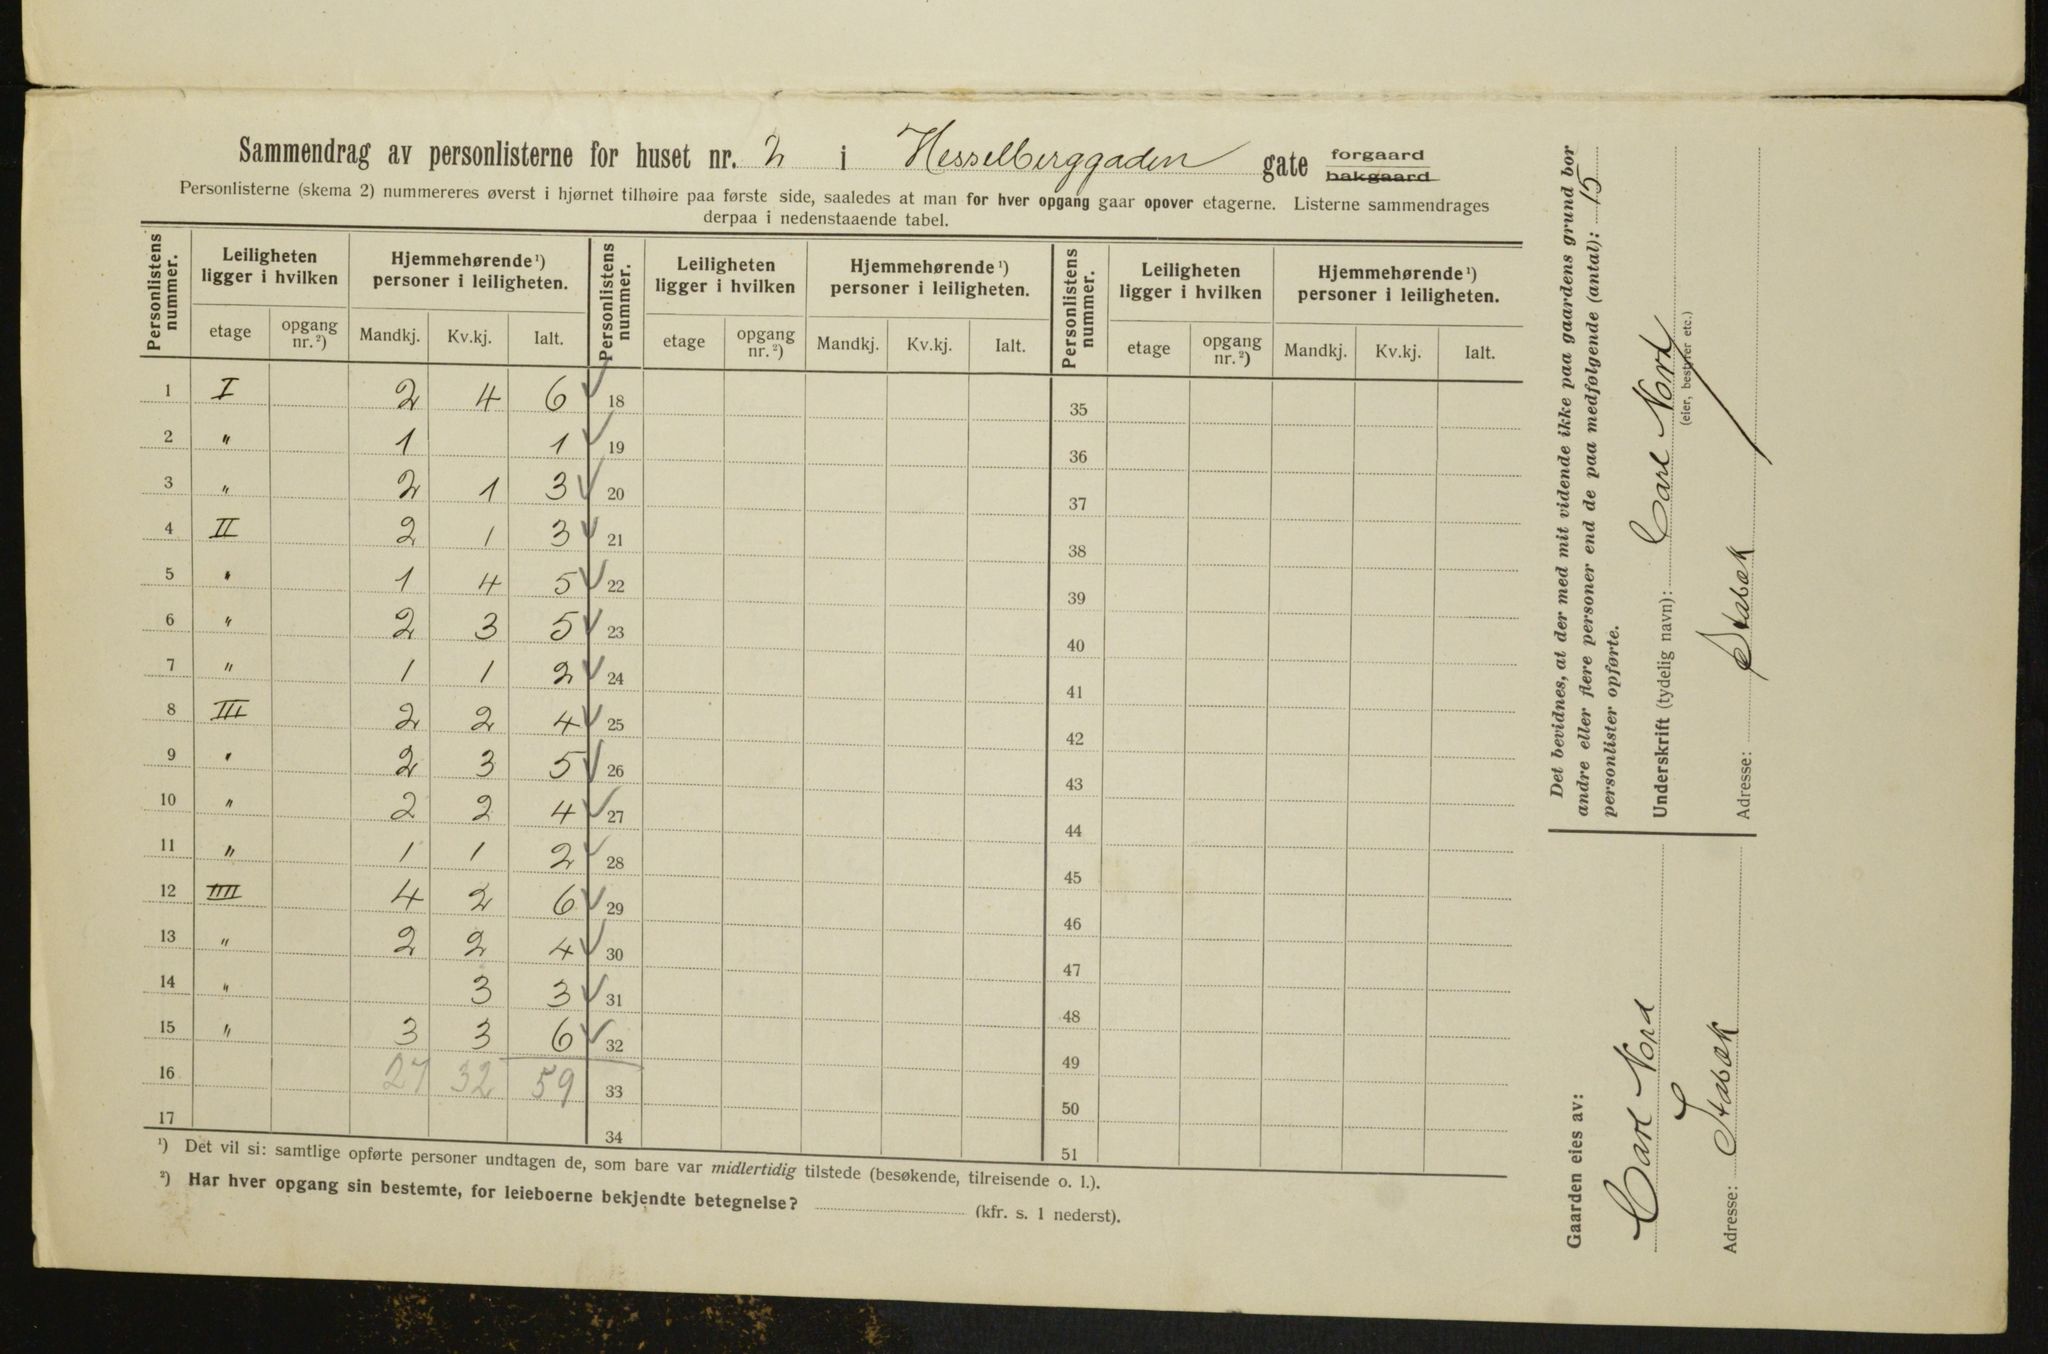 Sammendrag av personlisterne for huset nr. 2 i Hesselberggaden gate forgaard bakgaard
Personlisterne (skema 2) nummereres øverst i hjørnet tilhøire paa første side, saaledes at man for hver opgang gaar opover etagerne. Listerne sammendrages
derpaa i nedenstaaende tabel.
Personlistens nummer. Leiligheten ligger i hvilken Hjemmehørende ¹) personer i leiligheten. Personlistens nummer. Leiligheten ligger i hvilken Hjemmehørende ¹) personer i leiligheten. Personlistens nummer. Leiligheten ligger i hvilken Hjemmehørende ¹) personer i leiligheten.
etage opgang nr. ²) Mandkj. Kv.kj. Ialt. etage opgang nr. ²) Mandkj. Kv.kj. Ialt. etage opgang nr. ²) Mandkj. Kv.kj. Ialt.
1 I 2 4 6 ✓ 18 35
2 " 1 1 ✓ 19 36
3 " 2 1 3 ✓ 20 37
4 II 2 1 3 ✓ 21 38
5 " 1 4 5 ✓ 22 39
6 " 2 3 5 ✓ 23 40
7 " 1 1 2 ✓ 24 41
8 III 2 2 4 ✓ 25 42
9 " 2 3 5 ✓ 26 43
10 " 2 2 4 ✓ 27 44
11 " 1 1 2 ✓ 28 45
12 IIII 4 2 6 ✓ 29 46
13 " 2 2 4 ✓ 30 47
14 " 3 3 ✓ 31 48
15 " 3 3 6 ✓ 32 49
16 27 32 59 33 50
17 34 51
¹) Det vil si: samtlige opførte personer undtagen de, som bare var midlertidig tilstede (besøkende, tilreisende o. l.).
²) Har hver opgang sin bestemte, for leieboerne bekjendte betegnelse? (kfr. s. 1 nederst).
Det bevidnes, at der med mit vidende ikke paa gaardens grund bor
andre eller flere personer end de paa medfølgende (antal): 15
personlister opførte.
Underskrift (tydelig navn): Carl Nord
(eier, bestyrer etc.)
Adresse: Stabæk
Gaarden eies av:
Carl Nord
Adresse: Stabæk